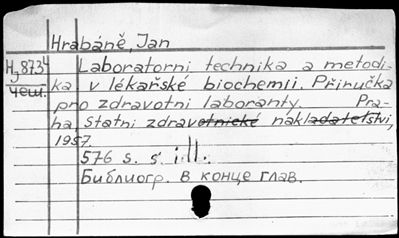 Hrabáně, Jan
Hj8734 Laboratorni technika a metodi-
чеш. ka v lékařské biochemii. Přiručka
pro zdravotni laboranty. Pra-
ha, Statni zdravotnické nakladatelstvi,
1957.
576 s. s ill.
Библиогр. в конце глав.